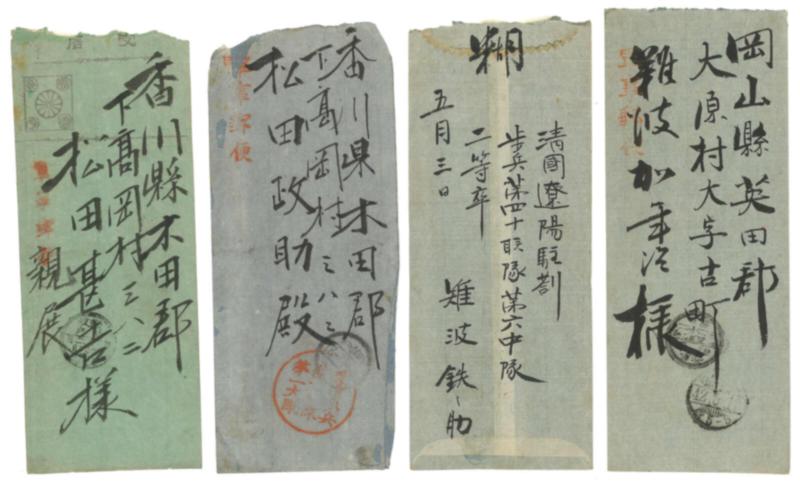 香川縣木田郡
下高岡村三八二
松田甚吉様
親展
軍事郵便
香川県木田郡
下高岡村三八二
松田政助殿
糊
清國遼陽駐劄
歩兵第四十联隊第六中隊
二等卒
難波鉄之助
五月三日
岡山縣英田郡
大原村大字古町
難波加年治様